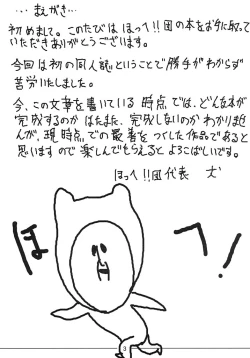 … まえがき …
初めまして。このたびは ほっへ!!団の本をお手に取って
いただきありがとうございます。
今回は初の同人誌ということで勝手がわからず
苦労いたしました。
今、この文章を書いている 時点 では、どんな本が
完成するのか はたまた、完成しないのか わかりませ
んが、現時点での最善を つくした作品であると
思いますので 楽しんでもらえると よろこばしいです。
ほっへ!!団代表
ほ へ!
3